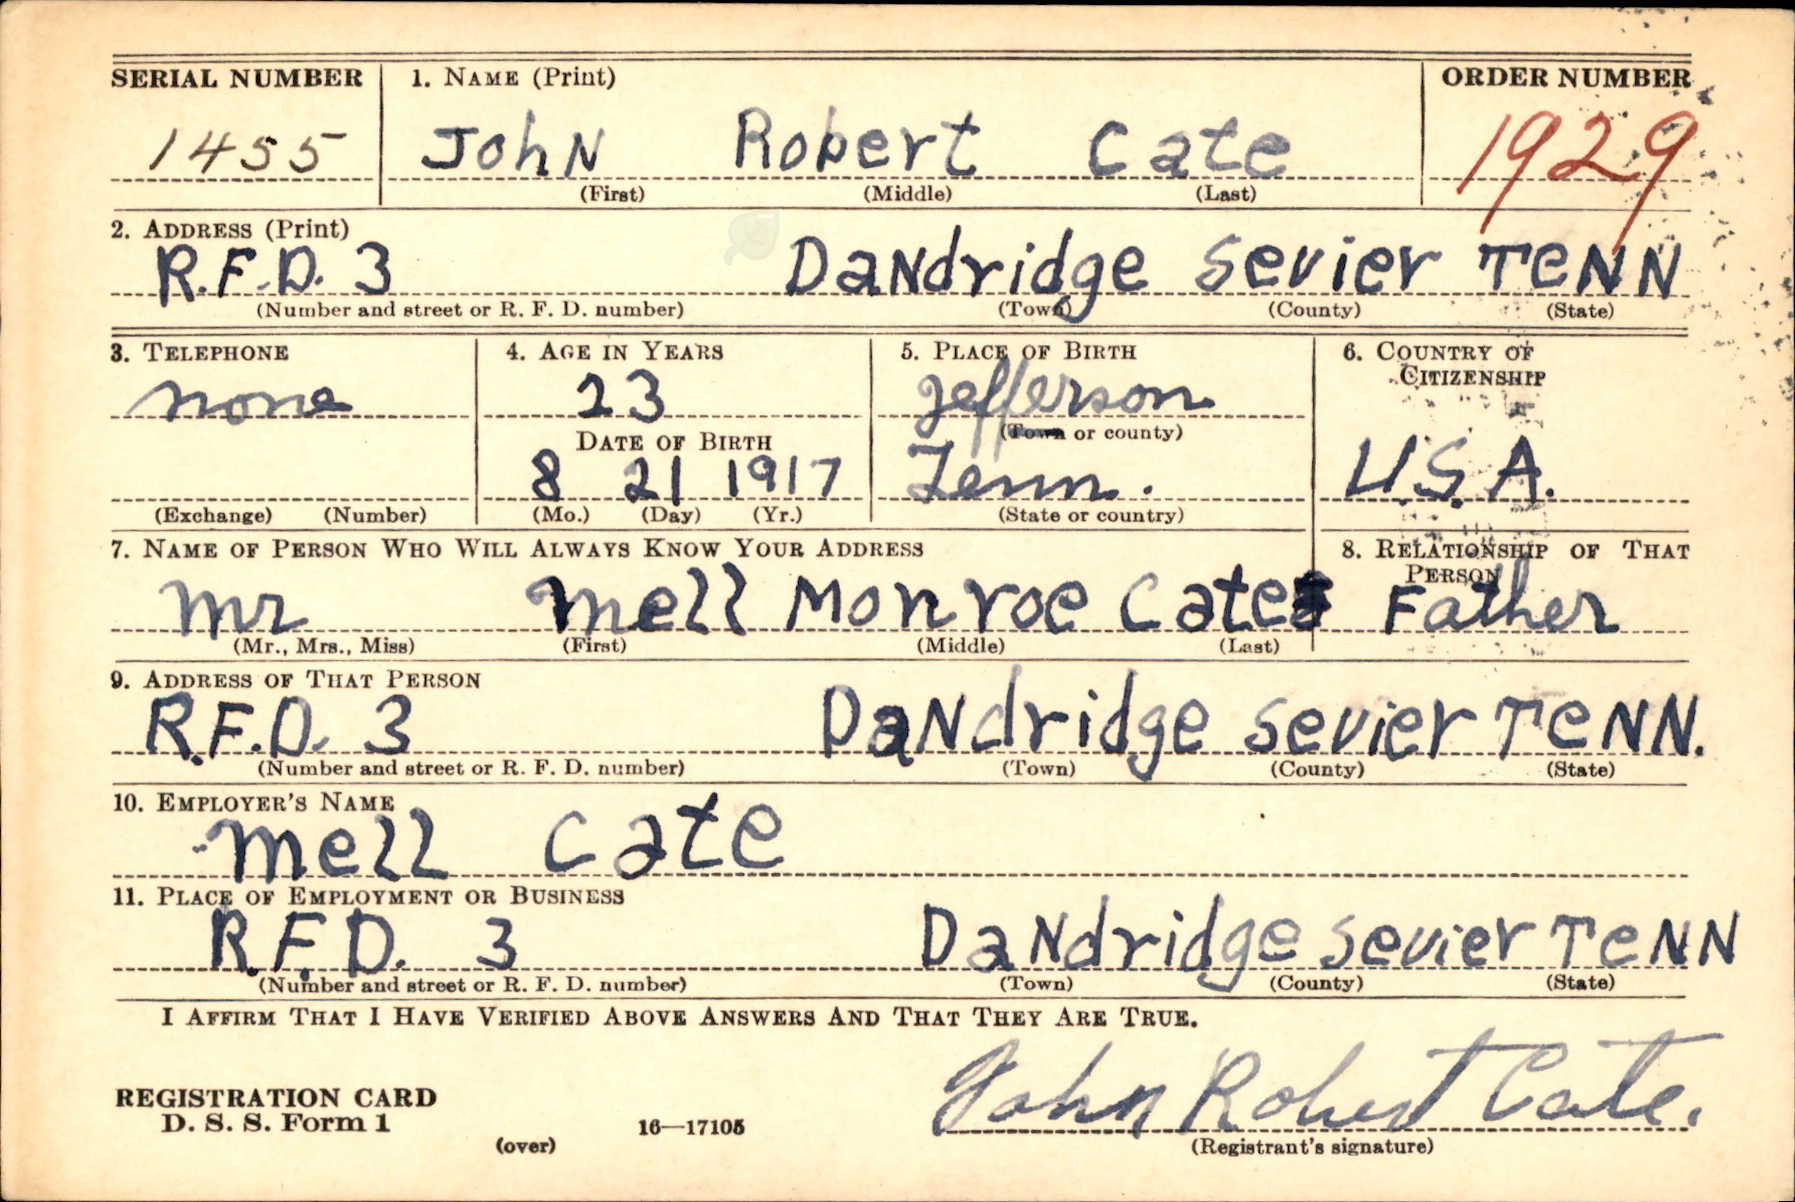 SERIAL NUMBER 1. NAME (Print) ORDER NUMBER
1455 John Robert Cate 1929
(First) (Middle) (Last)
2. ADDRESS (Print)
R.F.D. 3 Dandridge Sevier TENN
(Number and street or R. F. D. number) (Town) (County) (State)
3. TELEPHONE 4. AGE IN YEARS 5. PLACE OF BIRTH 6. COUNTRY OF
CITIZENSHIP
none 23 Jefferson
DATE OF BIRTH (Town or county)
8 21 1917 Tenn. U.S.A.
(Exchange) (Number) (Mo.) (Day) (Yr.) (State or country)
7. NAME OF PERSON WHO WILL ALWAYS KNOW YOUR ADDRESS 8. RELATIONSHIP OF THAT
PERSON
Mr Mell Monroe Cate Father
(Mr., Mrs., Miss) (First) (Middle) (Last)
9. ADDRESS OF THAT PERSON
R.F.D. 3 Dandridge Sevier TENN.
(Number and street or R. F. D. number) (Town) (County) (State)
10. EMPLOYER'S NAME
Mell Cate
11. PLACE OF EMPLOYMENT OR BUSINESS
R.F.D. 3 Dandridge Sevier TENN
(Number and street or R. F. D. number) (Town) (County) (State)
I AFFIRM THAT I HAVE VERIFIED ABOVE ANSWERS AND THAT THEY ARE TRUE.
John Robert Cate.
REGISTRATION CARD
D. S. S. Form 1
(over) 16—17105 (Registrant's signature)